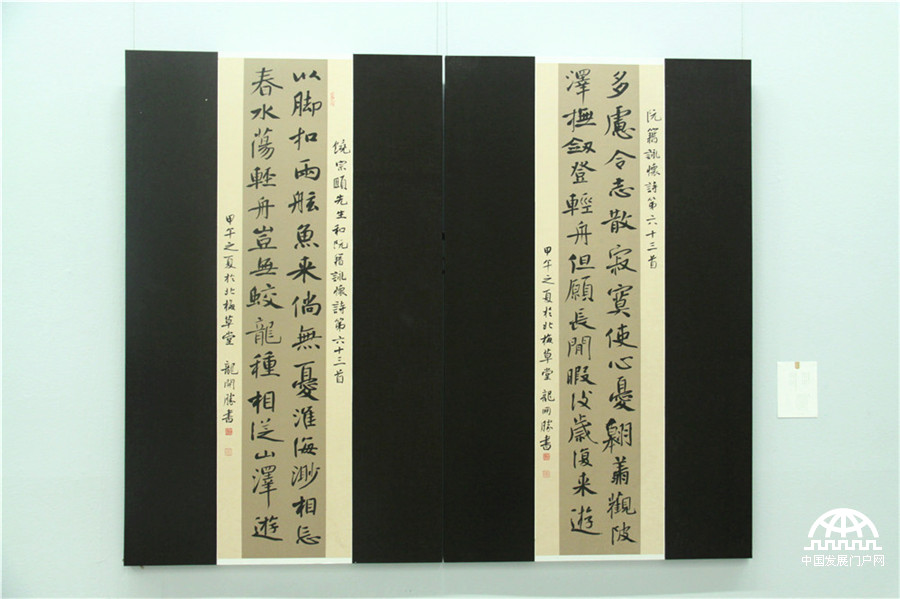 阮籍詠懷詩第六十三首
多慮令志散寂寞使心憂翱翔觀陂
澤撫劔登輕舟但願長閒暇後歲復来遊
甲午之夏於北梅草堂 龍開勝書
饒宗頤先生和阮籍詠懷詩第六十三首
以脚扣兩舷魚来倘無憂淮海渺相忘
春水蕩輕舟豈無蛟龍種相從山澤遊
甲午之夏於北梅草堂 龍開勝書
中国发展门户网